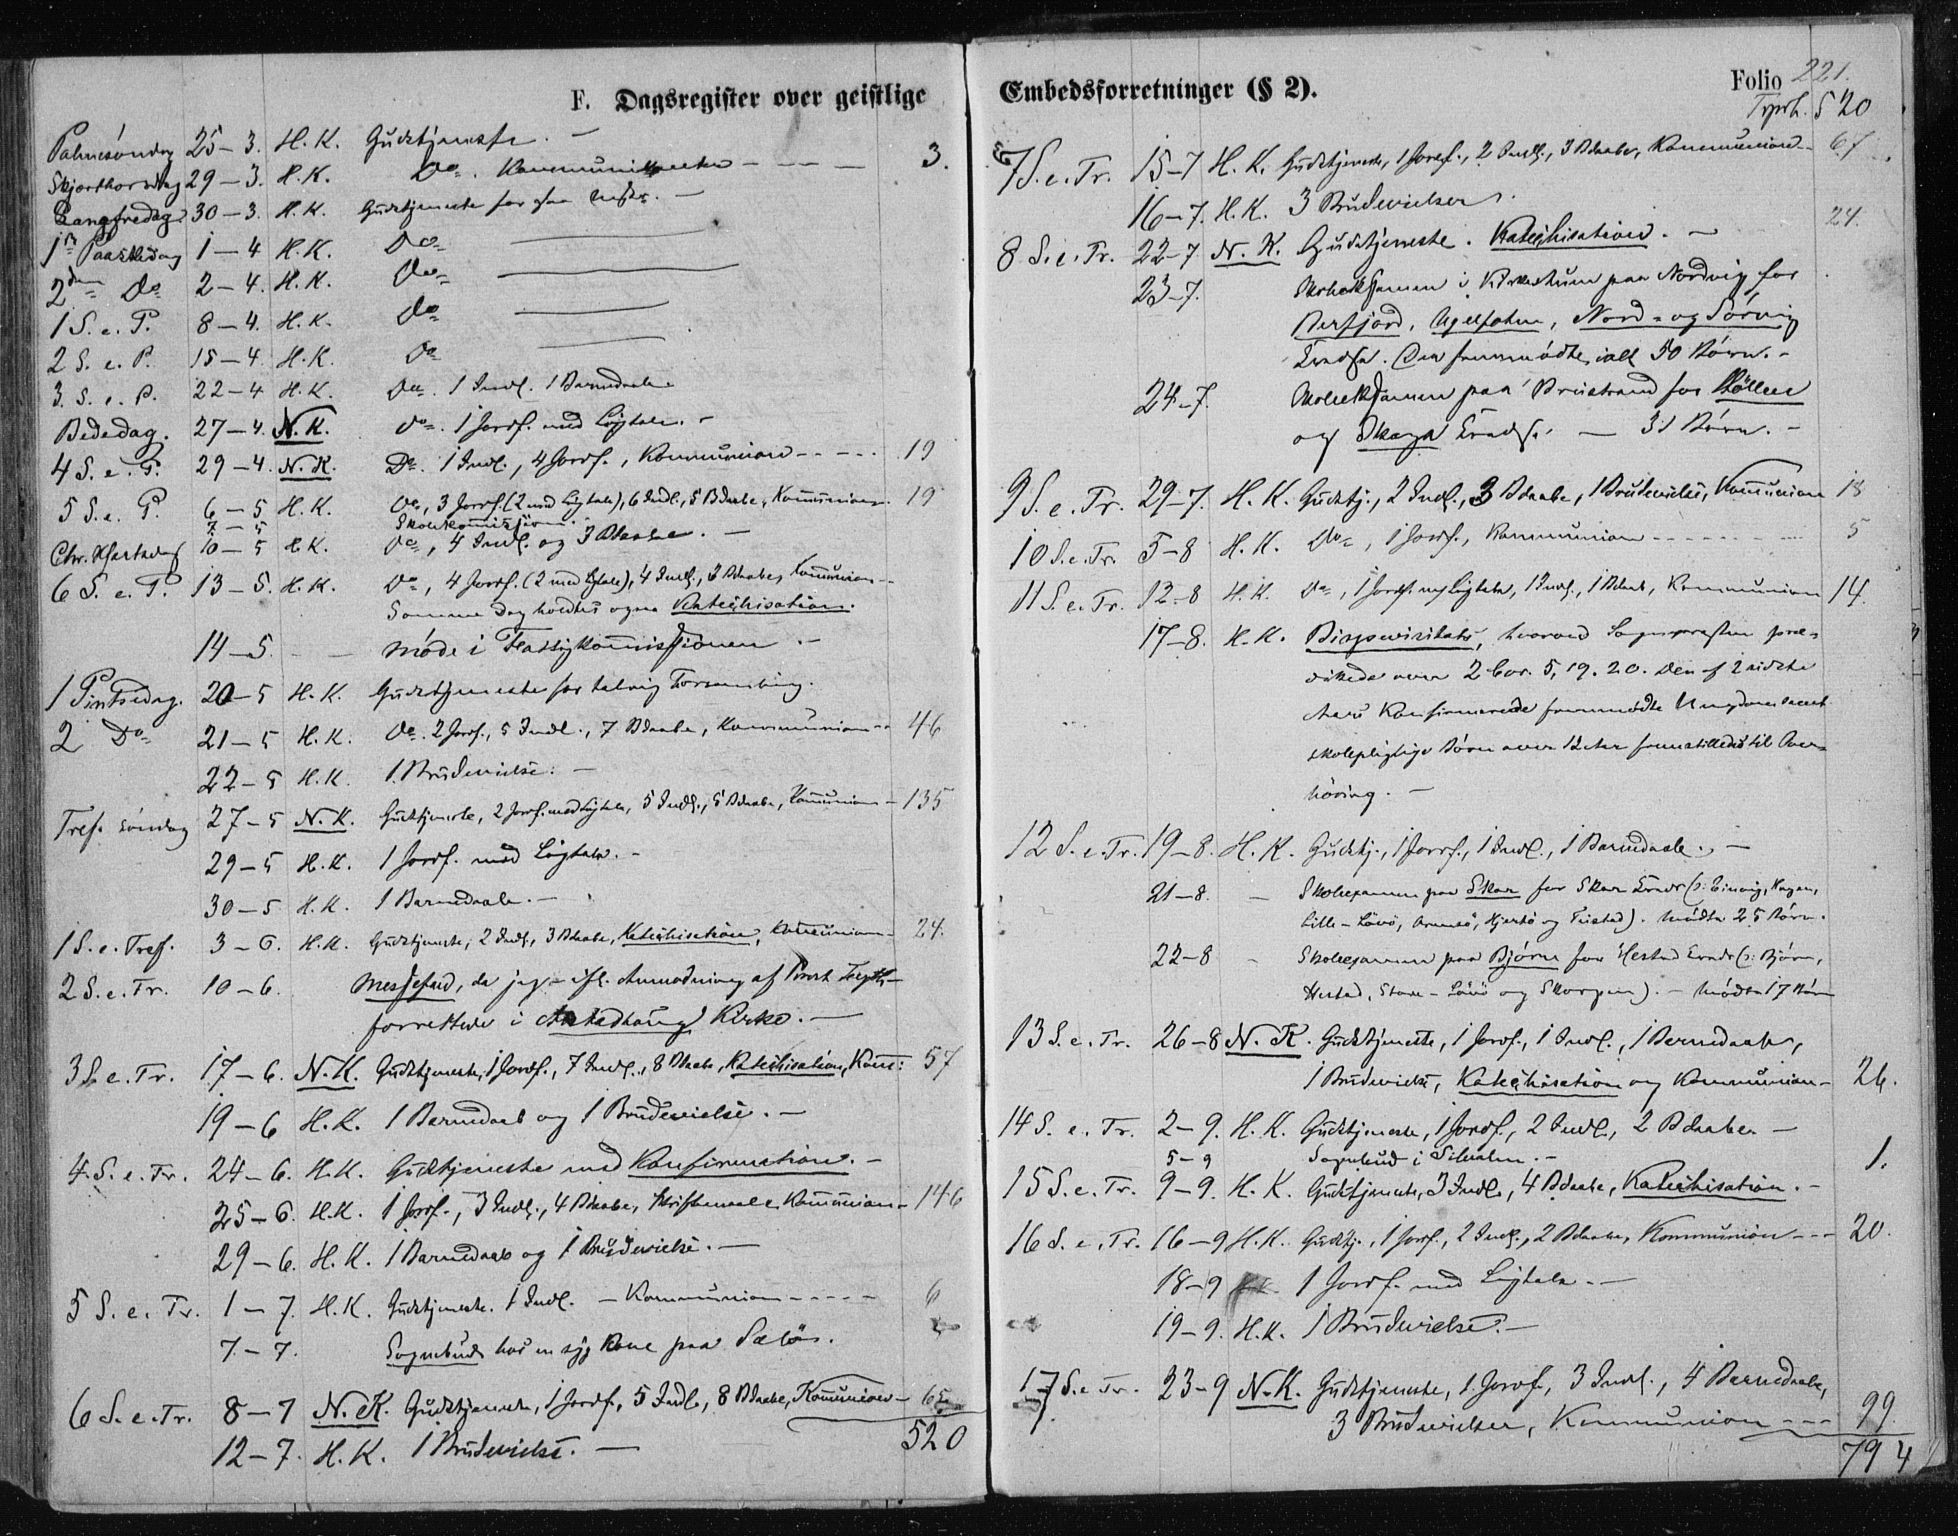 F. Dagsregister over geistlige
Palmesöndag 25–3. H. K. Gudstjeneste. –
Skjærthorsdag 29–3. H. K. Do. Kommunikanter – – – 3.
Langfredag 30–3. H. K. Gudstjeneste for
1ste Paaskedag 1–4 H. K. Do
2den Do 2–4. H. K. Do
1 S. e. P. 8–4. H. K. Do
2 S. e. P. 15–4. H. K. Do
3. S. e. P. 22–4 H. K. Do. 1 Indl. 1 Barnedaab.
Bededag. 27–4. N. K. Do. 1 Jordf. med Ligtale. –
4 S. e. P. 29–4. N. K. Do. 1 Indl., 4 Jordf., Kommunion – – – 19
5 S. e. P. 6–5 H. K. Do, 3 Jordf. (2 med Ligtale), 6 Indl., 5 Bdaabe, Kommunion. 19
7–5 Skolekommission.
Chr. Hfartsdag 10–5 H. K. Do, 4 Indl. og 3 Bdaabe. –
6 S. e. P. 13–5. H. K. Do, 4 Jordf. (2 med Ligtale), 4 Indl., 3 Bdaabe, Kommunion –
Samme Dag holdtes ogsaa Katechisation.
14–5. – Möde i Fattigkommissionen –
1 Pintsedag. 20–5 H. K. Gudstjeneste for talrig Forsamling.
2 Do 21–5 H. K. Do. 2 Jordf., 5 Indl., 7 Bdaabe, Kommunion – 46
22–5 H. K. 1 Brudevielse. –
Tref. Söndag 27–5 N. K. Gudstjeneste, 2 Jordf. med Ligtale, 5 Indl., 5 Bdaabe, Kommunion – 135
29–5 H. K. 1 Jordf. med Ligtale. –
30–5 H. K. 1 Barnedaab. –
1 S. e. Tref. 3–6. H. K. Gudstjeneste, 2 Indl., 3 Bdaabe, Katechisation, Kommunion – 24.
2 S. e. Tr. 10–6. Messefald, da jeg – ifl. Anmodning af Provst
forrettede i Alstadhoug Kirke. –
3 S. e. Tr. 17–6. N. K. Gudstjeneste, 1 Jordf., 7 Indl., 8 Bdaabe, Katechisation, Kom: 57
19–6 H. K. 1 Barnedaab og 1 Brudevielse. –
4. S. e. Tr. 24–6. H. K. Gudstjeneste med Konfirmation. –
25–6. H. K. 1 Jordf., 3 Indl., 4 Bdaabe, Skriftemaal, Kommunion – 146
29–6. H. K. 1 Barnedaab og 1 Brudevielse. –
5 S. e. Tr. 1–7. H. K. Gudstjeneste. 1 Indl. – Kommunion – – – 6
7–7. Sognebud hos en syg Kone paa
6 S. e. Tr. 8–7 N. K. Gudstjeneste, 1 Jordf., 5 Indl., 8 Bdaabe, Kommunion – 65
12–7. H. K. 1 Brudevielse. – 520
Embedsforretninger (§ 2).
Folio 221.
Trpt. 520
7 S. e. Tr. 15–7 H. K. Gudstjeneste, 1 Jordf., 2 Indl., 3 Bdaabe, Kommunion – 67
16–7. H. K. 3 Brudevielser.
24.
8 S. e. Tr. 22–7 N. K. Gudstjeneste. Katechisation. –
23–7. Skoleexamen i paa Nordvig for
Nord- og Sörvig
Kredse. Der fremmödte ialt 50 Börn. –
24–7. Skoleexamen paa for
og Kredse. – 31 Börn. –
9 S. e. Tr. 29–7. H. K. Gudstj., 2 Indl., 3 Bdaabe, 1 Brudevielse, Kommunion 18
10 S. e. Tr. 5–8 H. K. Do, 1 Jordf., Kommunion – – – 5
11 S. e. Tr. 12–8 H. K. Do, 1 Jordf. m/ Ligtale, 1 Indl., 1 Bdaab, Kommunion 14.
17–8. H. K. Bispevisitats, hvorved Sognepræsten præ-
dikede over 2 Cor. 5, 19. 20. Den af 2 sidste
Aars Konfirmerede fremmödte Ungdom samt
skolepligtige Börn over 12 Aar fremstilledes til Over-
höring. –
12 S. e. Tr. 19–8. H. K. Gudstj., 1 Jordf., 1 Indl., 1 Barnedaab. –
21–8. – Skoleexamen paa Skar for Skar Kreds
Lille-Lövö, og ). Mödte 25 Börn.
22–8 – Skoleexamen paa Bjørn for Hestad Kreds (: Bjørn,
Hestad, Store-Lövö og Skorpen). – Mödte 17 Börn
13 S. e. Tr. 26–8 N. K. Gudstjeneste, 1 Jordf., 1 Indl., 1 Barnedaab,
1 Brudevielse, Katechisation og Kommunion – 26.
14 S. e. Tr. 2–9. H. K. Gudstjeneste, 1 Jordf., 2 Indl., 2 Bdaabe. –
5–9 Sognebud i – 1.
15 S. e. Tr. 9–9. H. K. Gudstjeneste, 3 Indl., 4 Bdaabe, Katechisation. –
16 S. e. Tr. 16–9 H. K. Gudstj., 1 Jordf., 2 Indl., 2 Bdaabe, Kommunion – – – 20.
18–9 H. K. 1 Jordf. med Ligtale. –
19–9. H. K. 1 Brudevielse. –
17 S. e. Tr. 23–9 N. K. Gudstjeneste, 1 Jordf., 3 Indl., 4 Barnedaab,
3 Brudevielser, Kommunion – – – 99.
794